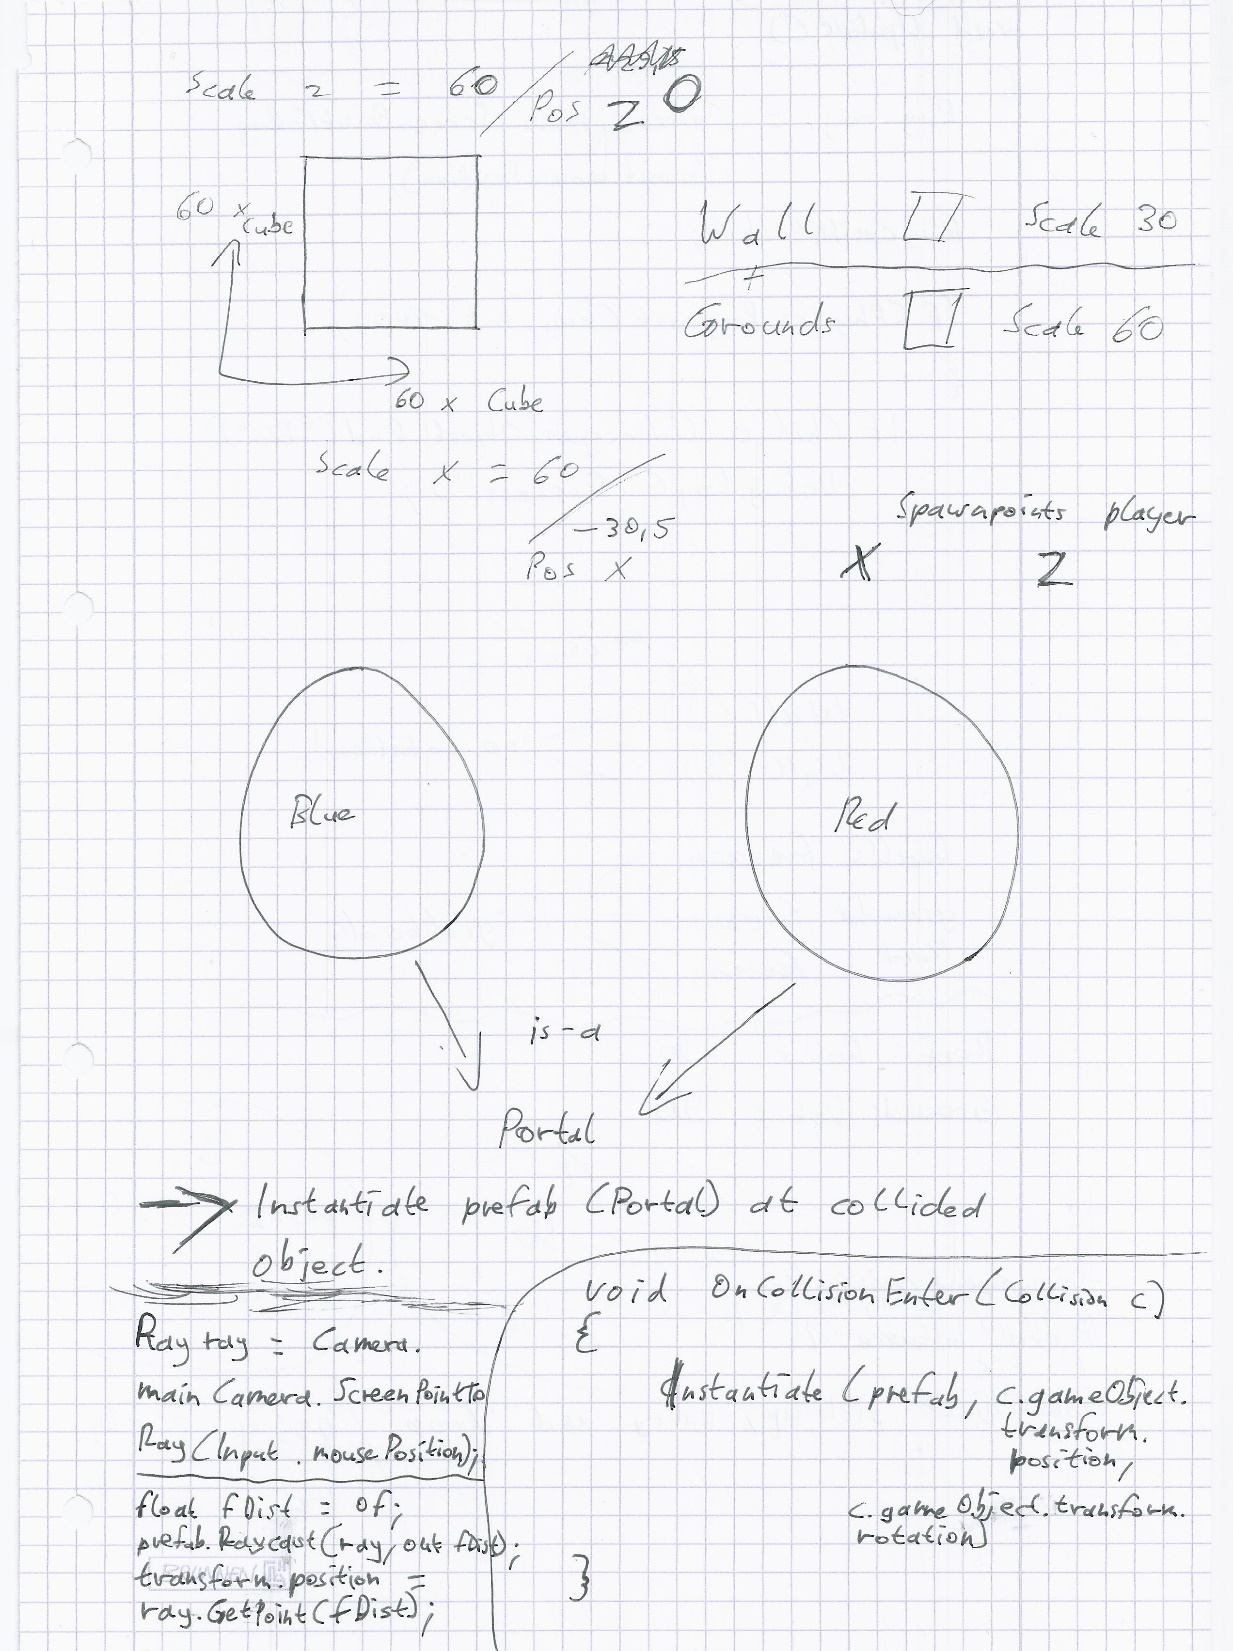 Scale z = 60 / Pos Z 0
60 x Cube
60 x Cube
Wall Scale 30
+
Grounds Scale 60
Scale x = 60 /
-30,5
Pos X
Spawnpoints player
X Z
Blue
Red
is-a
Portal
Instantiate prefab (Portal) at collided
object.
Ray ray = Camera.
mainCamera.ScreenPointTo
Ray(Input.mousePosition);
float fDist = 0f;
prefab.Raycast(ray, out fDist);
transform.position =
ray.GetPoint(fDist);
void OnCollisionEnter(Collision c)
{
Instantiate (prefab, c.gameObject.
transform.
position,
c.gameObject.transform.
rotation)
}